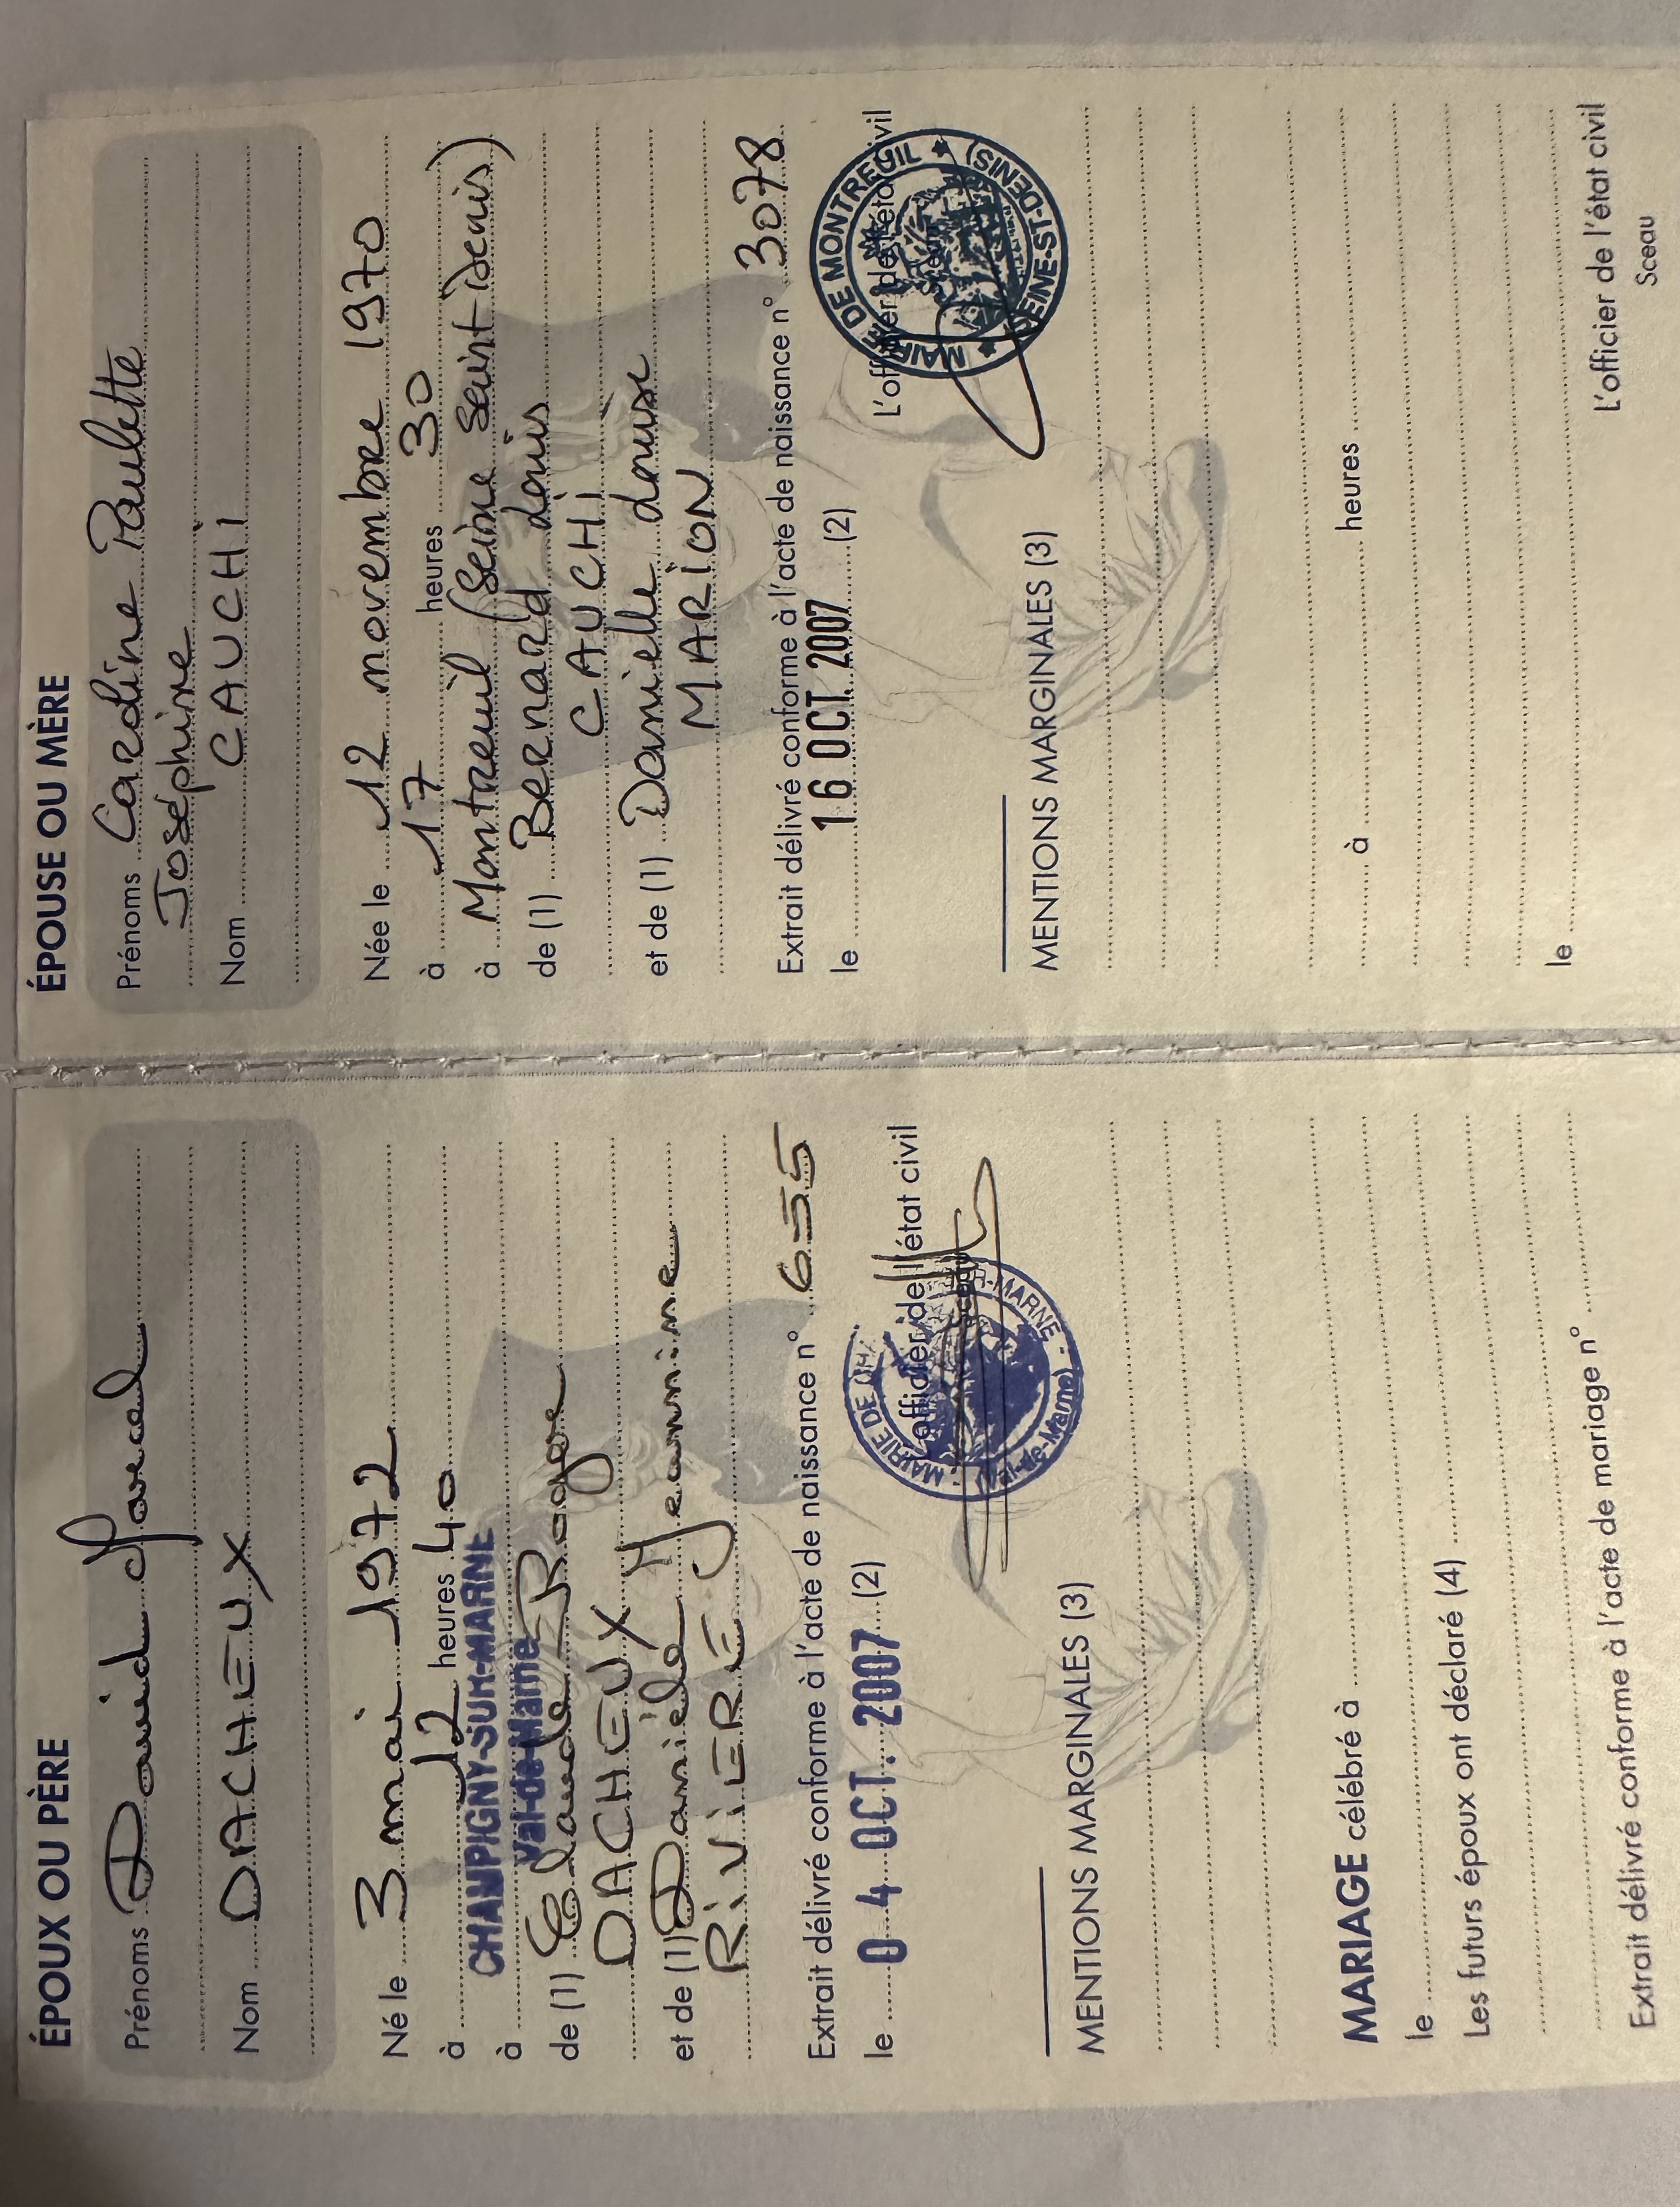 ÉPOUX OU PÈRE
Prénoms David Marcel
Nom DACHEUX
Né le 3 mai 1972
à 12 heures 40
à CHAMPIGNY-SUR-MARNE
Val-de-Marne
de (1) Claude Roger
DACHEUX
et de (1) Danièle Jeannine
RiViERE
Extrait délivré conforme à l'acte de naissance n° 655
le 04 OCT. 2007 (2)
L'officier de l'état civil
Sceau
MAIRIE DE CH -MARNE
(Val-de-Marne)
MENTIONS MARGINALES (3)
MARIAGE célébré à
le
Les futurs époux ont déclaré (4)
Extrait délivré conforme à l'acte de mariage n°
ÉPOUSE OU MÈRE
Prénoms Caroline Paulette
Joséphine
Nom CAUCHi
Née le 12 novembre 1970
à 17 heures 30
à Montreuil (Seine Saint Denis)
de (1) Bernard Louis
CAUCHi
et de (1) Danielle Louise
MARiON
Extrait délivré conforme à l'acte de naissance n° 3078
le 16 OCT. 2007 (2)
L'officier de l'état civil
Sceau
MAIRIE DE MONTREUIL
(SEINE-ST-DENIS)
MENTIONS MARGINALES (3)
à heures
le
L'officier de l'état civil
Sceau